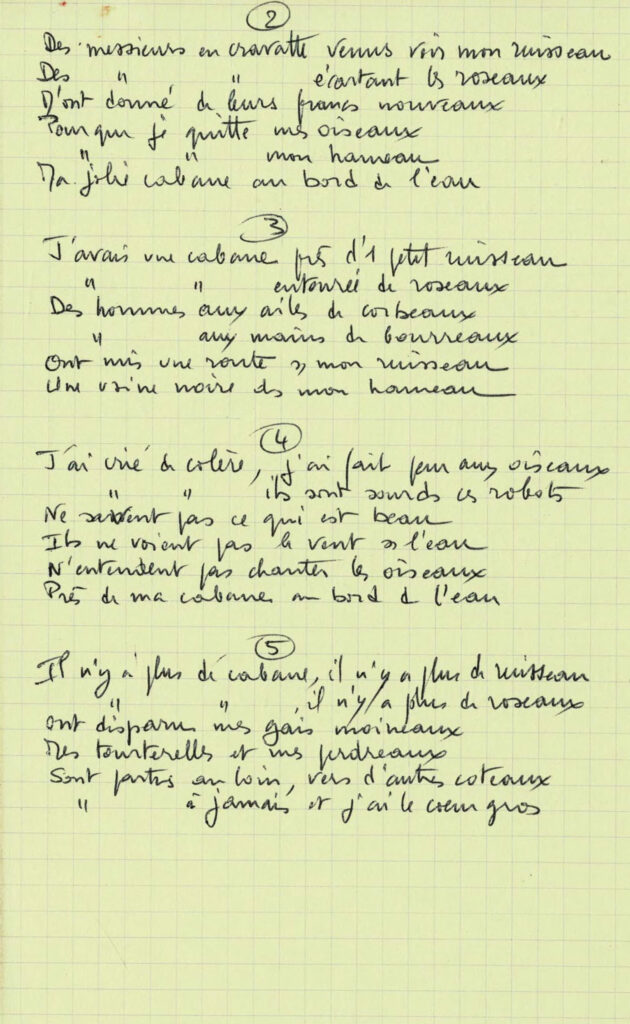 2
Des messieurs en cravatte venus voir mon ruisseau
Des " " écartant les roseaux
M'ont donné de leurs francs nouveaux
Pour que je quitte mes oiseaux
" " mon hameau
Ma jolie cabane au bord de l'eau
3
J'avais une cabane près d'1 petit ruisseau
" " entourée de roseaux
Des hommes aux ailes de corbeaux
" aux mains de bourreaux
Ont mis une route s/ mon ruisseau
Une usine noire ds mon hameau
4
J'ai crié de colère, j'ai fait peur aux oiseaux
" " ils sont sourds ces robots
Ne savent pas ce qui est beau
Ils ne voient pas le vent s/ l'eau
N'entendent pas chanter les oiseaux
Près de ma cabane au bord de l'eau
5
Il n'y a plus de cabane, il n'y a plus de ruisseau
" " , il n'y a plus de roseaux
Ont disparu mes gais moineaux
Mes tourterelles et mes perdreaux
Sont partis au loin, vers d'autres coteaux
" à jamais et j'ai le coeur gros